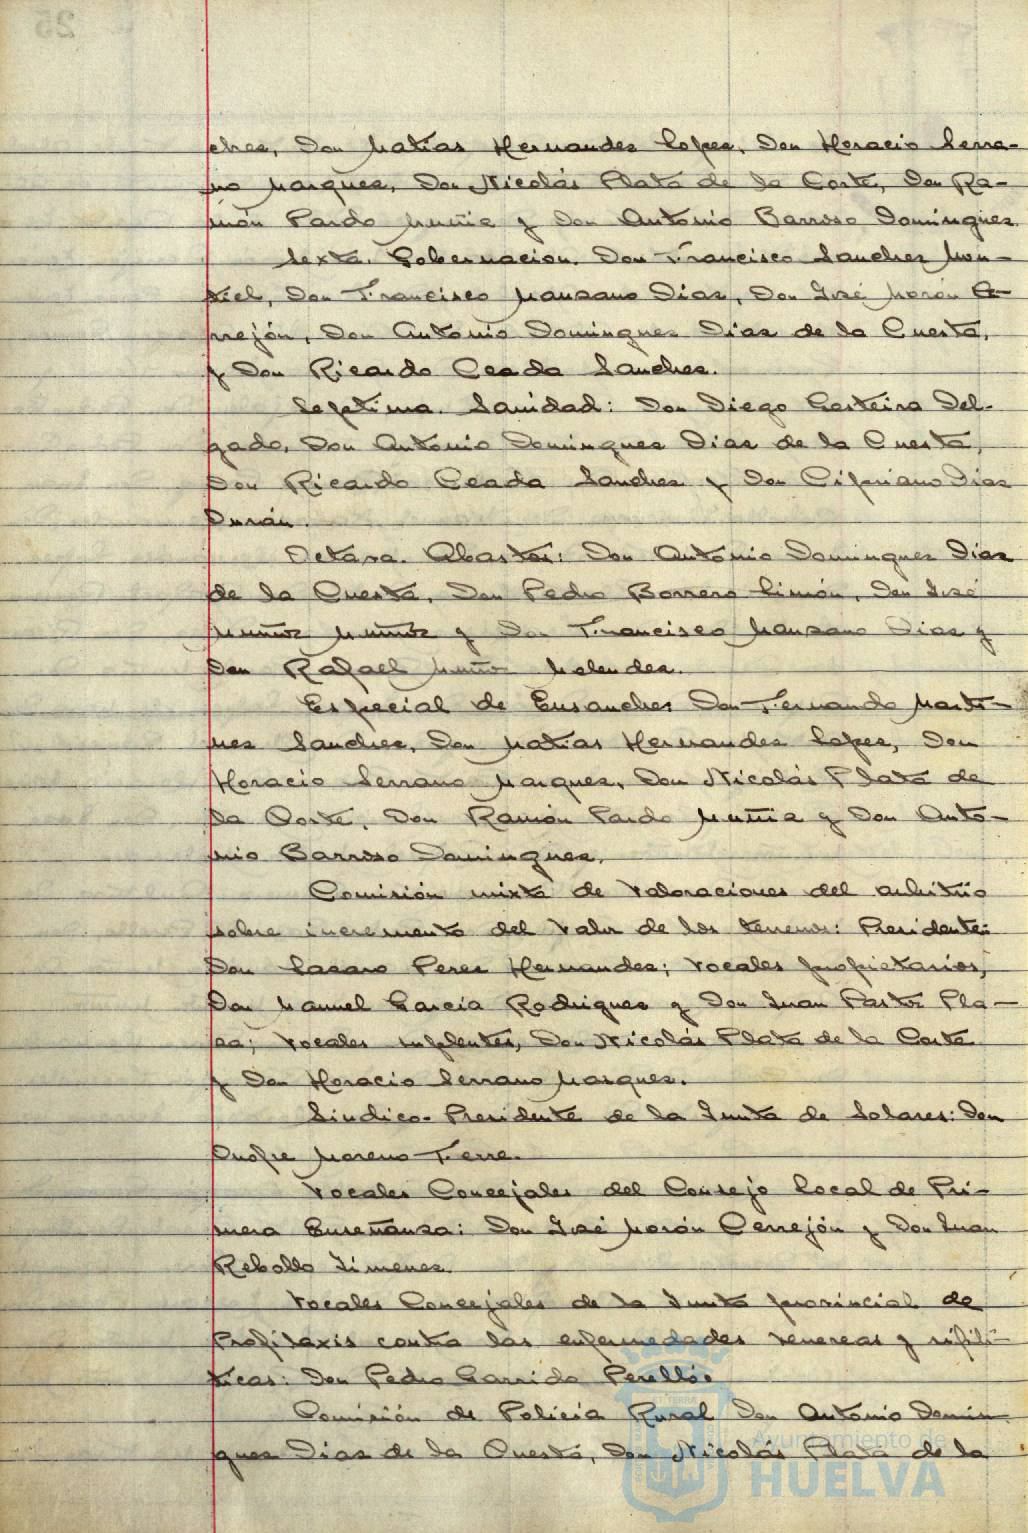 ches, Don Matias Hernandez Lopez, Don Horacio Serra-
no Marquez, Don Nicolás Plata de la Corte, Don Ra-
món Pardo Muñiz y Don Antonio Barroso Dominguez
Sexta. Gobernacion. Don Francisco Sanchez Mon-
tiel, Don Francisco Manzano Diaz, Don José Morón Ce-
rrejón, Don Antonio Dominguez Diaz de la Cuesta,
y Don Ricardo Ceada Sanchez.
Septima. Sanidad: Don Diego Garteira Del-
gado, Don Antonio Dominguez Diaz de la Cuesta,
Don Ricardo Ceada Sanchez y Don Cipriano Diaz
Durán.
Octava. Abastos: Don Antonio Dominguez Diaz
de la Cuesta, Don Pedro Borrero Limón, Don José
Muñoz Muñoz y Don Francisco Manzano Diaz y
Don Rafael Muñoz Melendez.
Especial de Ensanche: Don Fernando Marti-
nez Sanchez, Don Matias Hernandez Lopez, Don
Horacio Serrano Marquez, Don Nicolás Plata de
la Corte, Don Ramón Pardo Muñiz y Don Anto-
nio Barroso Dominguez.
Comisión mixta de Valoraciones del arbitrio
sobre incremento del valor de los terrenos: Presidente:
Don Lazaro Perez Hernandez; Vocales propietarios,
Don Manuel Garcia Rodriguez y Don Juan Pastor Pla-
za; Vocales suplentes, Don Nicolás Plata de la Corte
y Don Horacio Serrano Marquez.
Sindico-Presidente de la Junta de Solares: Don
Onofre Moreno Ferre.
Vocales Concejales del Consejo Local de Pri-
mera Enseñanza: Don José Morón Cerrejón y Don Juan
Rebollo Jimenez.
Vocales Concejales de la Junta provincial de
Profilaxis contra las enfermedades venereas y sifili-
ticas: Don Pedro Garrido Perelló.
Comisión de Policia Rural Don Antonio Domin-
guez Diaz de la Cuesta, Don Nicolás Plata de la
Ayuntamiento de
HUELVA